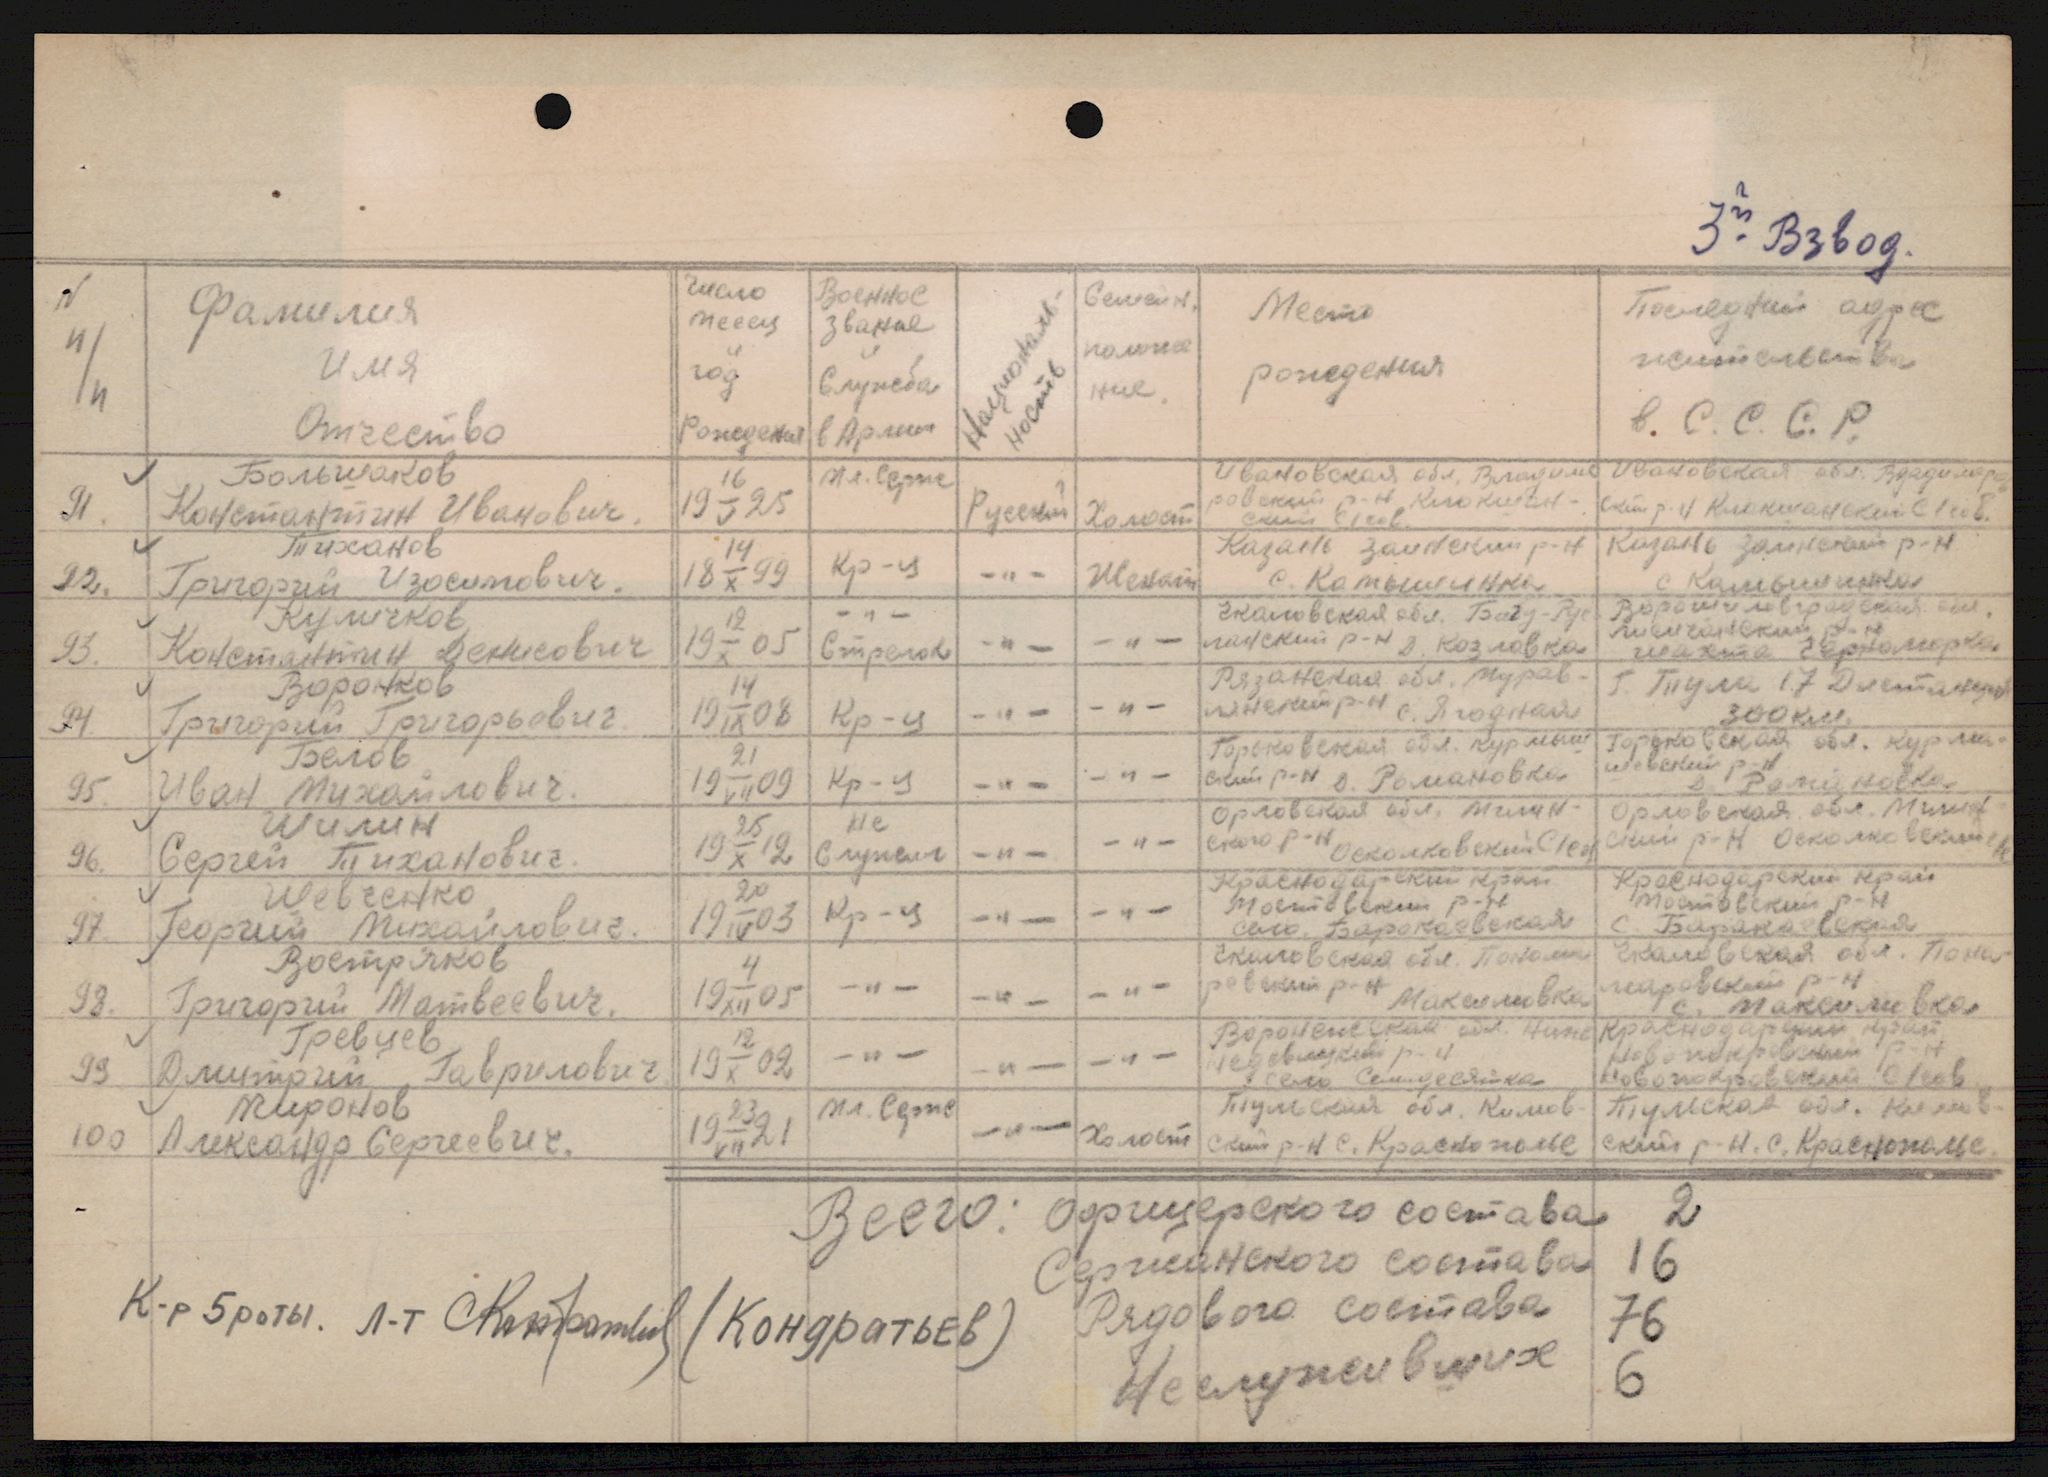 3й Взвод.
N п/п
Фамилия Имя Отчество
Число месец год Рождения
Военное звание Служба в Армии
Националь-ность
Семейн. положе ние.
Место рождения
Последний адрес жительства в. С. С. С. Р.
91. Большаков Константин Иванович. 19 16/V 25 Мл. Серж Русский Холост Ивановская обл. Владими ровский р-н Клокман- ский С/сов. Ивановская обл. Владимиро ский р-н Клокманский С/сов.
92. Тиханов Григорий Изосимович. 18 14/X 99 Кр-ц -"- Женат Казань Заинский р-н с. Камышинка Казань Заинский р-н с Камышинка
93. Куличков Константин Денисович 19 12/X 05 -"- Стрелок -"- -"- Чкаловская обл. Бугу-Рус ланский р-н Д. Козловка Ворошиловградская обл. Лисичанский р-н шахта Черноморка
94. Воронков Григорий Григорьевич. 19 14/IX 08 Кр-ц -"- -"- Рязанская обл. Мурав- лянский р-н с. Ягодная Г. Тула 17 Дистанция 300 км.
95. Белов Иван Михайлович. 19 21/VII 09 Кр-ц -"- -"- Горьковская обл. Курмыш ский р-н Д. Романовка Горьковская обл. Курмы- шевский р-н Д. Романовка
96. Шилин Сергей Тиханович. 19 25/X 12 Не Служил -"- -"- Орловская обл. Млин- ского р-н Осколковский С/сов Орловская обл. Млин- ский р-н Осколковский с/с
97. Шевченко Георгий Михайлович. 19 20/IV 03 Кр-ц -"- -"- Краснодарский край Мостовский р-н село. Баракаевская Краснодарский край Мостовский р-н С. Баракаевская
98. Востряков Григорий Матвеевич. 19 4/XII 05 -"- -"- -"- Чкаловская обл. Понома ревский р-н Максимовка Чкаловская обл. Поно- маровский р-н С. Максимовка
99 Гревцев Дмитрий Гаврилович 19 12/X 02 -"- -"- -"- Воронежская обл. Ниже недевицкий р-н село Семидесятка Краснодарский край Новопокровский р-н Новопокровский С/сов
100 Миронов Александр Сергеевич. 19 23/VII 21 Мл. Серж -"- Холост Тульская обл. Кимов- ский р-н С. Краснополье Тульская обл. Кимов- ский р-н. С. Краснополье.
Всего: Офицерского состава 2
Сержанского состава 16
Рядового состава 76
Неслуживших 6
К-р 5 роты. Л-т (Кондратьев)